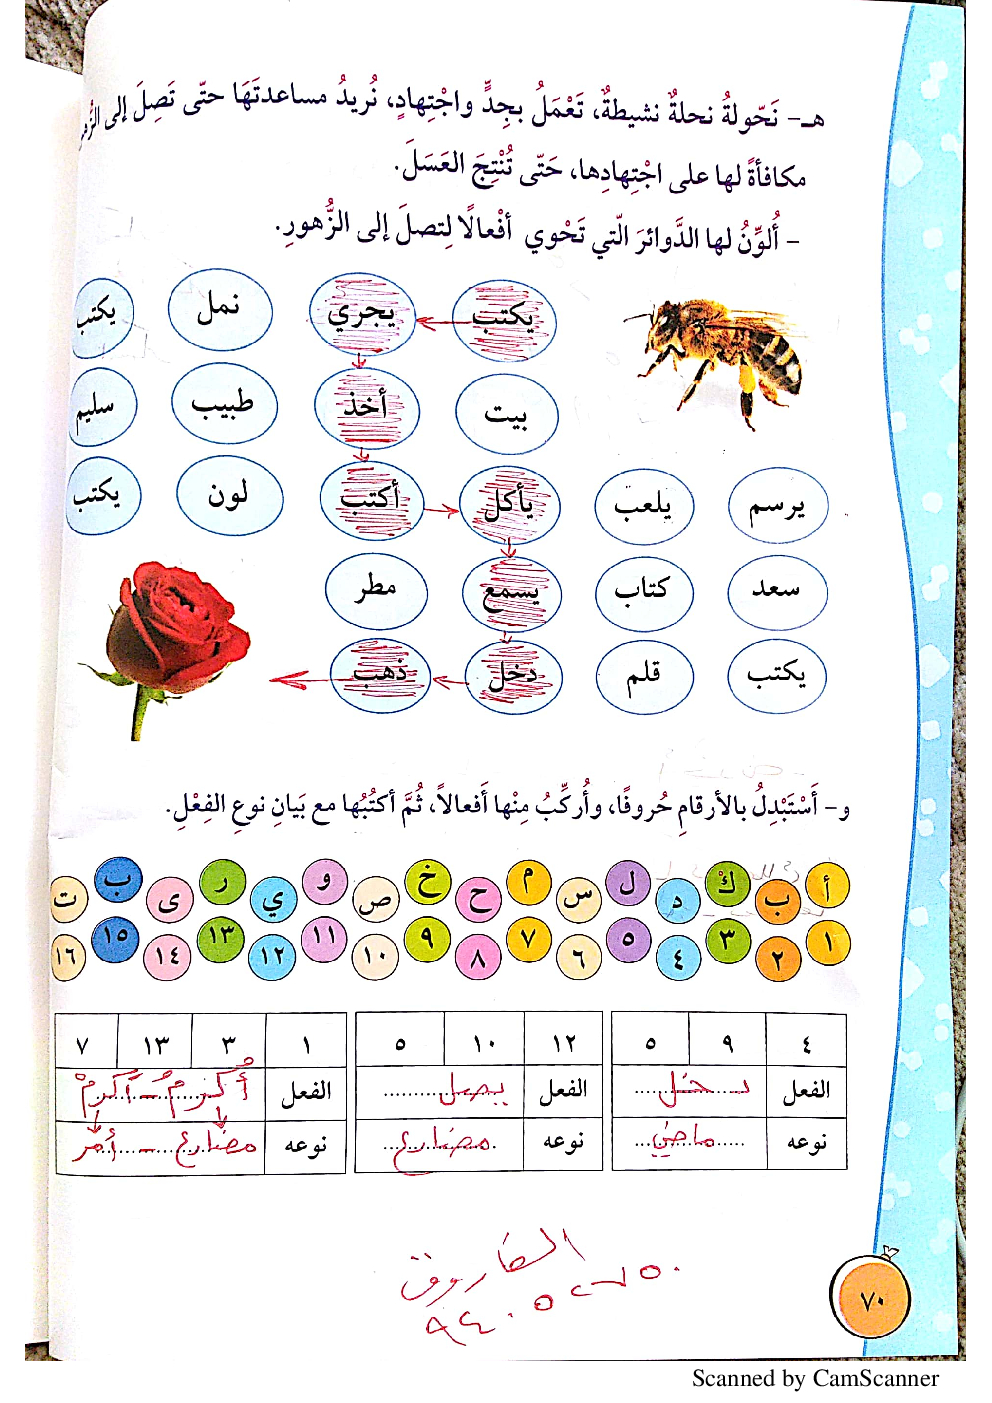 هـ- نَحّولةُ نحلةٌ نشيطةٌ، تَعْمَلُ بجِدٍّ واجْتِهادٍ، نُريدُ مساعدتَهَا حتّى تَصِلَ إلى
مكافأةً لها على اجْتِهادِها، حَتّى تُنْتِجَ العَسَلَ.
- أُلوِّنُ لها الدَّوائرَ الّتي تَحْوي أفْعالًا لِتصلَ إلى الزُّهورِ.
يكتب يجري نمل يكتب
بيت أخذ طبيب سليم
يرسم يلعب يأكل أكتب لون يكتب
سعد كتاب يسمع مطر
يكتب قلم دخل ذهب
و- أَسْتَبْدِلُ بالأرقامِ حُروفًا، وأُركِّبُ مِنْها أَفعالاً، ثُمَّ أكتُبُها مع بَيانِ نوعِ الفِعْلِ.
أ ب ك د ل س م ح خ ص و ي ر ى ب ت
١ ٢ ٣ ٤ ٥ ٦ ٧ ٨ ٩ ١٠ ١١ ١٢ ١٣ ١٤ ١٥ ١٦
٤ ٩ ٥ ١٢ ١٠ ٥ ١ ٣ ١٣ ٧
الفعل دخل الفعل يصل الفعل أُكْرِمُ - أَكْرِمْ
نوعه ماضٍ نوعه مضارع نوعه مضارع - أمر
الفاروق
٩٤٠٥
٧٠
Scanned by CamScanner